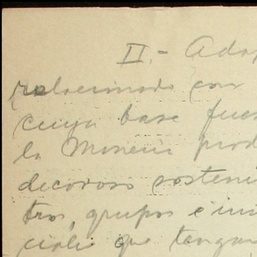 II.- Adop
relacionado con
cuya base fues
la Minería prod
decoroso sosteni
tros, grupos e ins
ciales que tengan